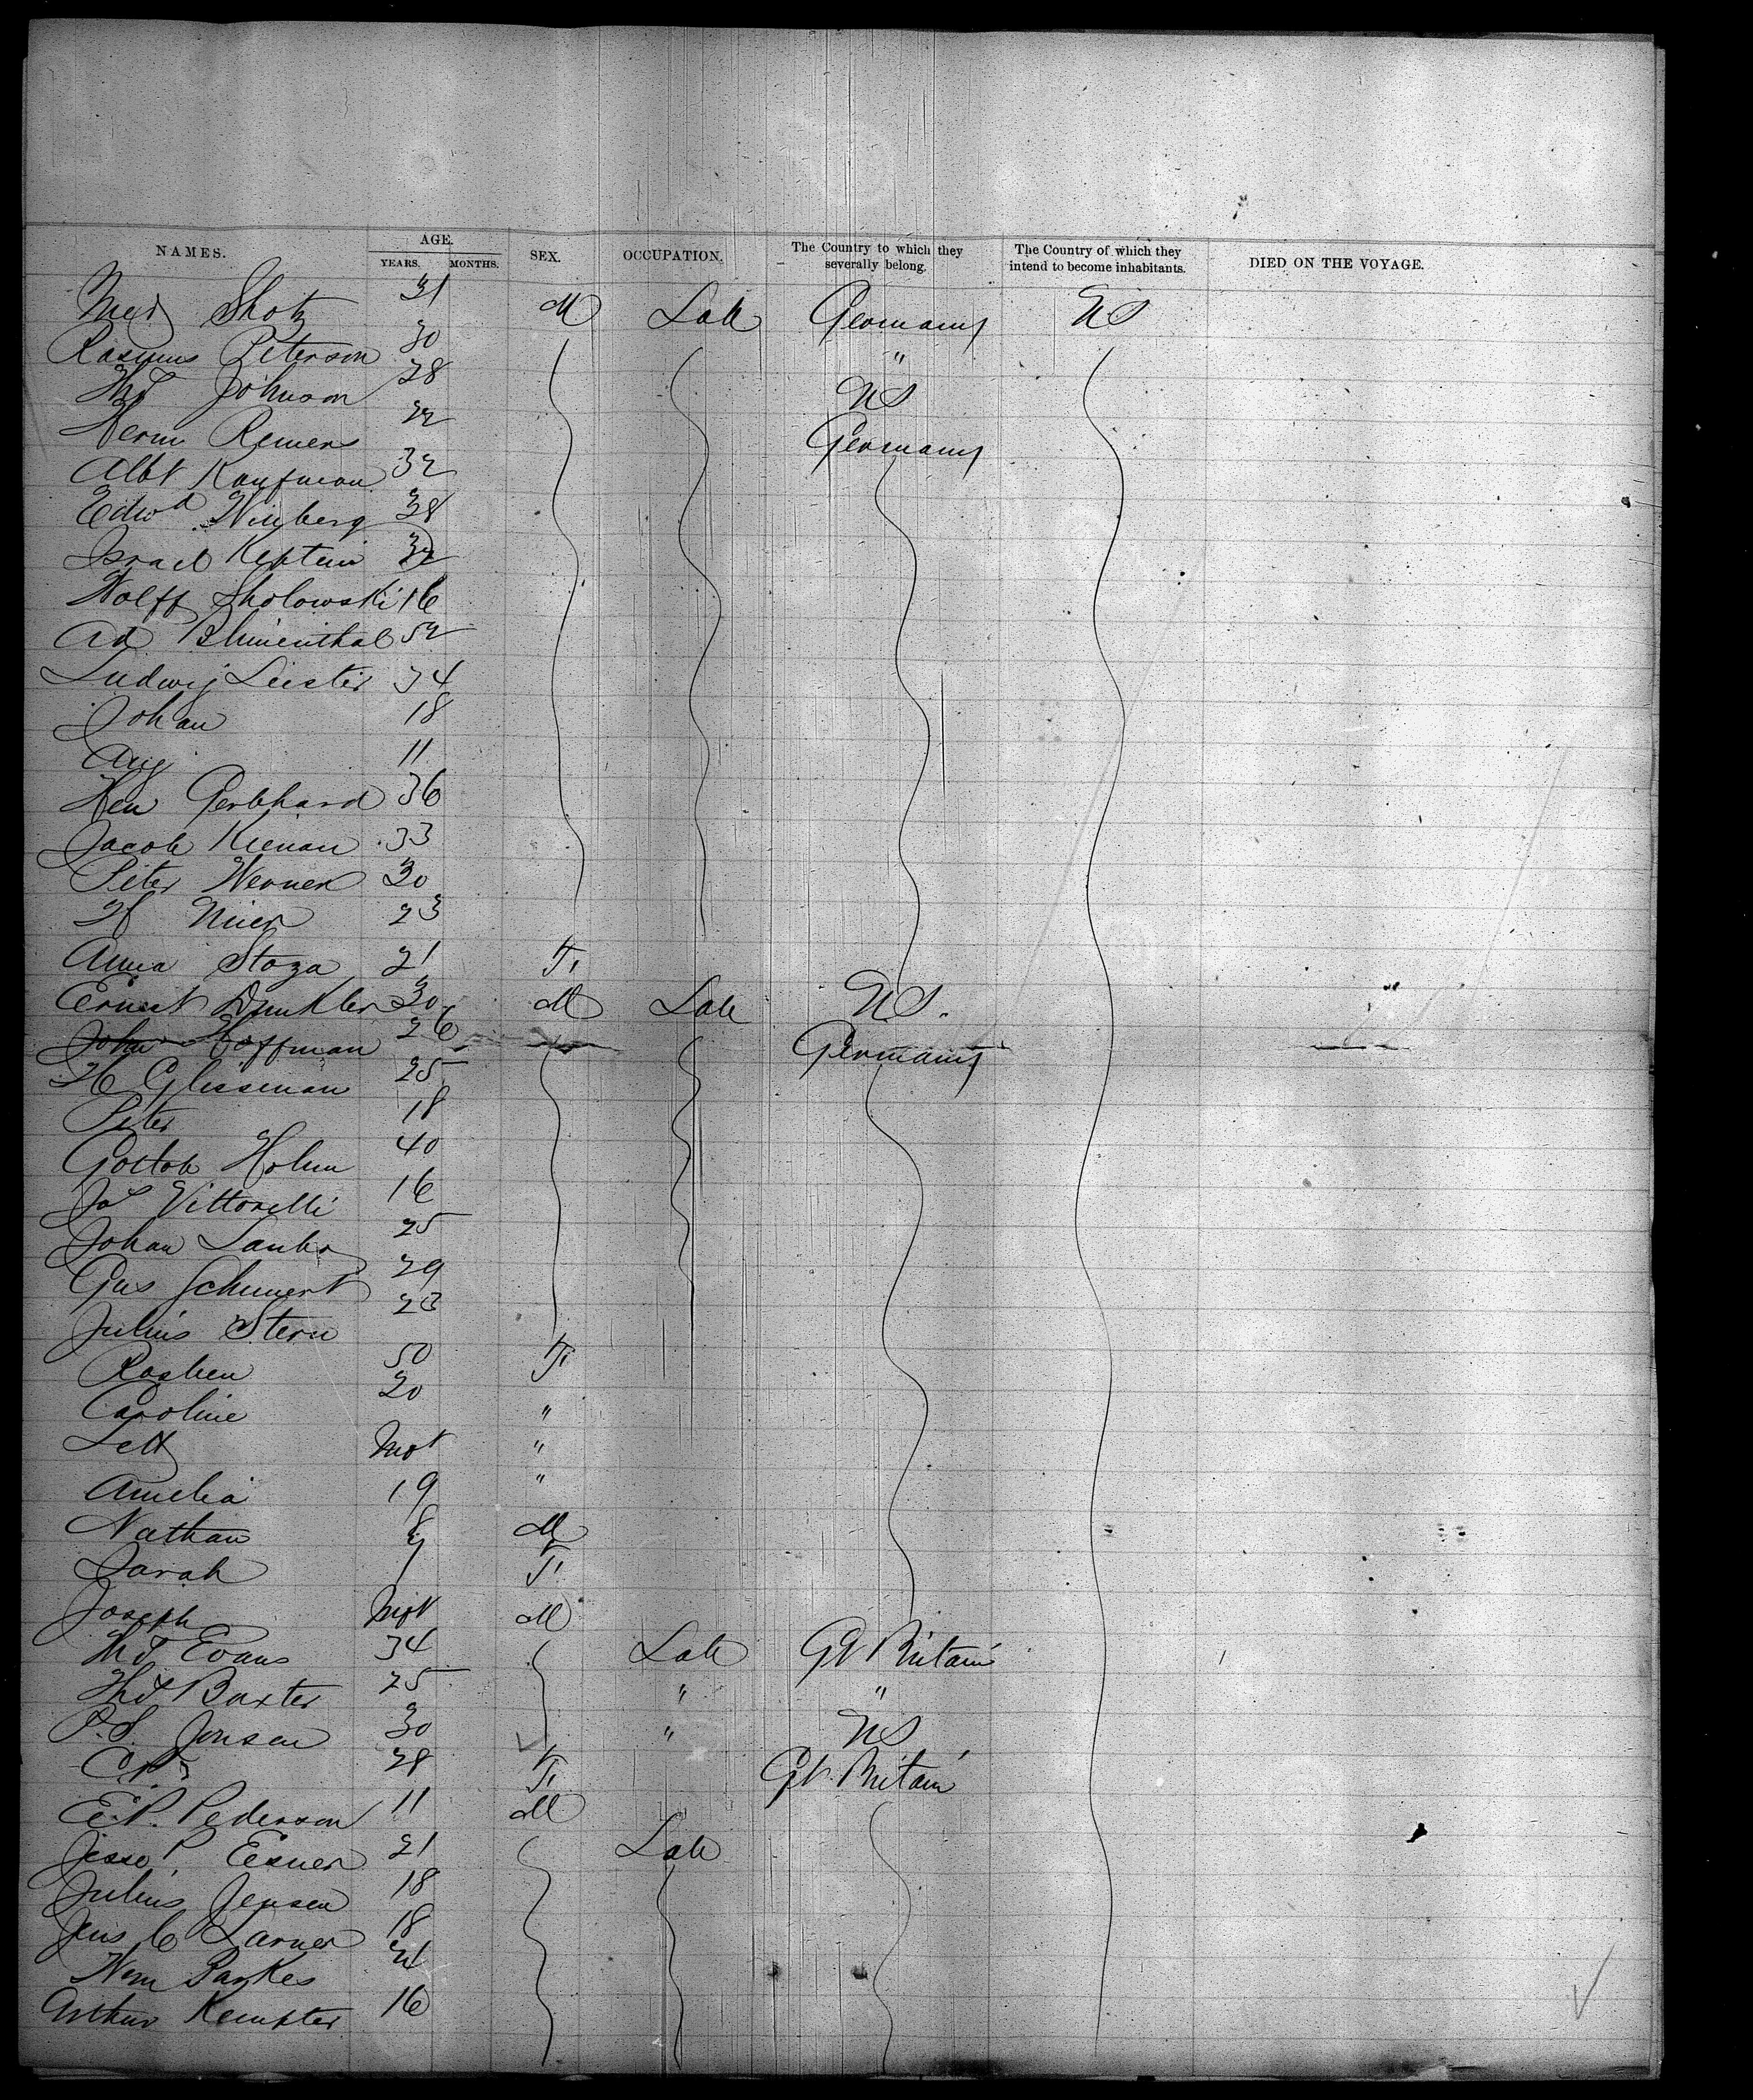 NAMES. AGE. SEX. OCCUPATION. The Country to which they severally belong. The Country of which they intend to become inhabitants. DIED ON THE VOYAGE.
YEARS. MONTHS.
Shotz 31 M Lab Germany US
Rasmus Peterson 30 "
Johnson 28 US
Herm Remers 22 Germany
Albt Kaufman 32
Edwd Winberg 38
Israel 32
Wolff Sholowski 16
Ad Blumenthal 52
Ludwig Leister 34
Johan 18
Aug 11
Hen Gerbhard 36
Jacob Kienan 33
Peter Werner 30
23
Anna Stoza 21 F.
Ernest Dunkler 30 M Lab US.
John Hoffman 26 Germany
H Glissman 25
Peter 18
Gottob Holm 40
Jos Vittorelli 16
Johan 25
Gus Schunert 29
Julius Stern 23
50 F.
Caroline 20 "
"
Amelia 19 "
Nathan 8 M
Sarah F.
Joseph M
Evans 34 Lab Gt Britain
Thos Baxter 25 " "
P.S. Jonsen 30 " US
28 F. Gt. Britain
E.P. Pederson 11 M
Jesse P. Eisner 21 Lab
Julius Jensen 18
Jens C Larner 18
Wm Parkes
Arthur Kempter 16